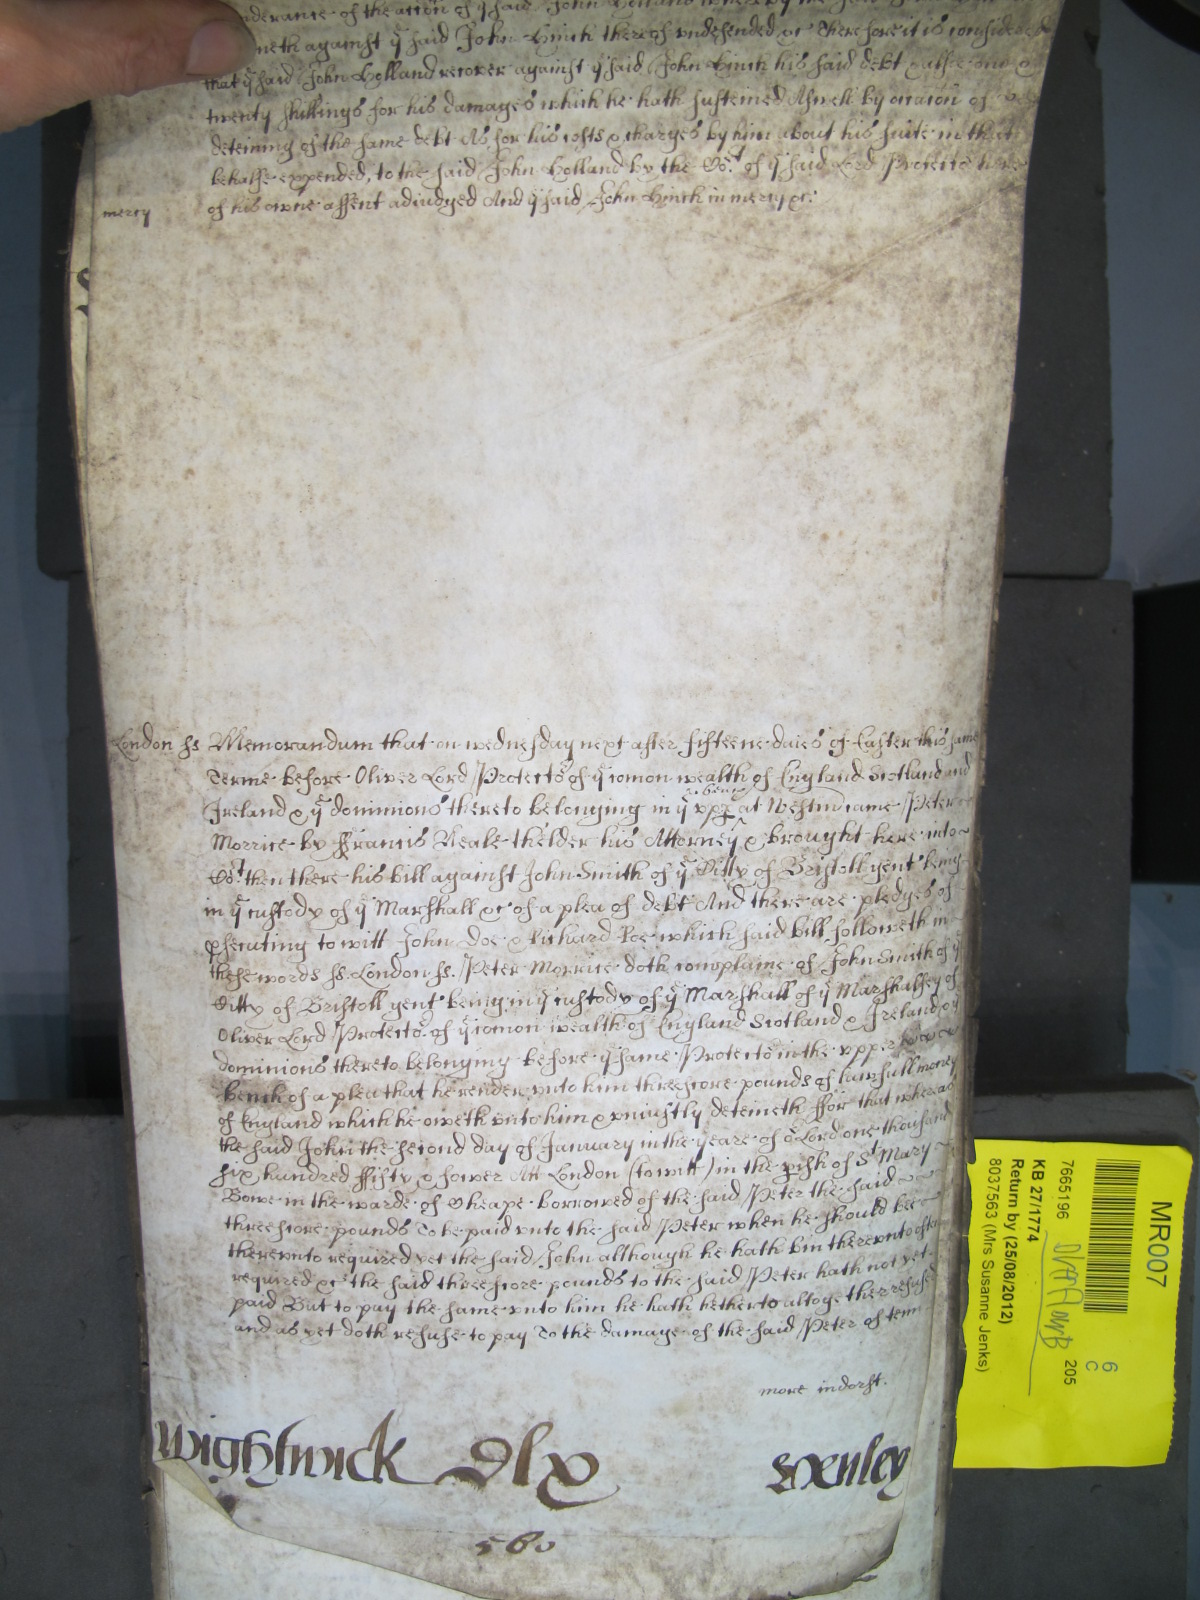 derance of the action of yͤ said John Holland
neth against yͤ said John Hinch thereof undefended &c Therefore it is considered
that yͤ said John Holland recover against yͤ said John Hinch his said debt & alsoe
twenty shillings for his damages which he hath susteined Aswell by occasion of
deteining of the same debt As for his costs & charges by him about his suite in that
behalfe expended, to the said John Holland by the Coᵗ of yͤ said Lord Protectoʳ here
of his owne assent adiudged And yͤ said John Hinch in mercy &c:
mercy
London ss Memorandum that on wednesday next after fifteene daies of Easter this same
Terme before Oliver Lord Protectoʳ of yͤ comon wealth of England Scotland and
Ireland & yͤ dominions thereto belonging in yͤ vpp bench at Westm came Peter
Morrice by ffrancis Neale thelder his Attorney & brought here into
Coᵗ then there his bill against John Smith of yͤ Citty of Bristoll gent being
in yͤ custody of yͤ Marshall &c of a plea of debt And there are pledges of
ꝓsecuting to witt John Doe & Richard Roe which said bill followeth in
these words ss. London ss. Peter Morrice doth complaine of John Smith of yͤ
Citty of Bristoll gent being in yͤ custody of yͤ Marshall of yͤ Marshalsey of
Oliver Lord Protectoʳ of yͤ comon wealth of England Scotland & Ireland & yͤ
dominions thereto belonging before yͤ same Protectoʳ in the vpper
bench of a plea that he render vnto him threescore pounds of lawfull money
of England which he oweth vnto him & vniustly deteineth ffor that whereas
the said John the second day of January in the yeare of oʳ Lord one thousand
six hundred ffifty & fower Att London (to witt) in the ꝑish of Sᵗ Mary
Bowe in the warde of Cheape borrowed of the said Peter the said
threescore pounds To be paid vnto the said Peter when he should bee
therevnto required yet the said John although he hath bin therevnto often
required &c the said threescore pounds to the said Peter hath not yet
paid But to pay the same vnto him he hath hetherto altogether refused
and as yet doth refuse to pay To the damage of the said Peter of tenn
more indorst.
Wightwick Dlx
560
MR007
6
C
205
7665196
KB 27/1774
Return by (25/08/2012)
8037563 (Mrs Susanne Jenks)